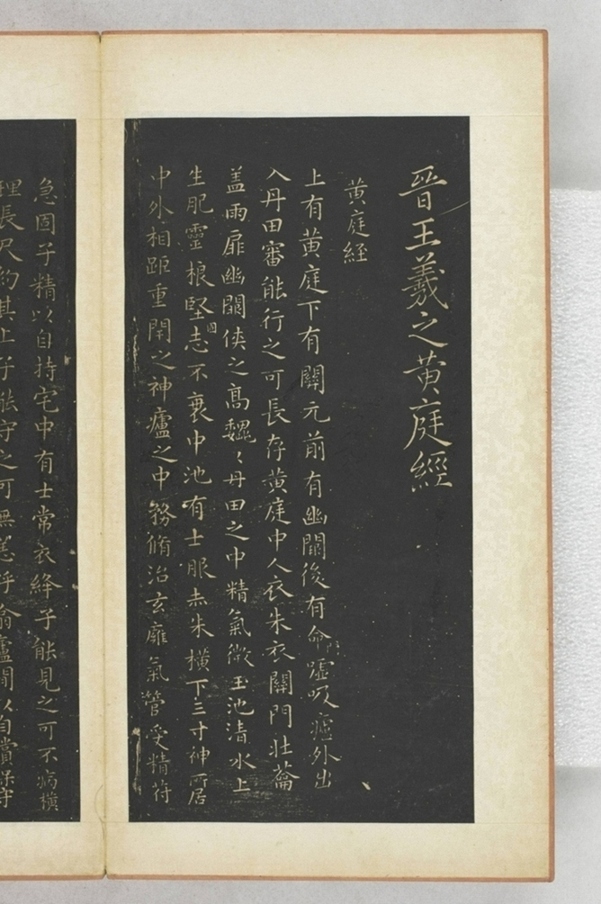 晉王羲之黄庭經
黄庭経
上有黄庭下有關元前有幽闕後有命門嘘吸廬外出
入丹田審能行之可長存黄庭中人衣朱衣關門壮蘥
盖兩扉幽闕侠之髙魏〻丹田之中精氣微玉池清水上
生肥靈根堅固志不衰中池有士服赤朱横下三寸神所居
中外相距重閇之神廬之中務脩治玄廱氣管受精苻
急固子精以自持宅中有士常衣絳子能見之可不病橫
理長尺約其上子能守之可無恙呼翕廬閒以自賞保守